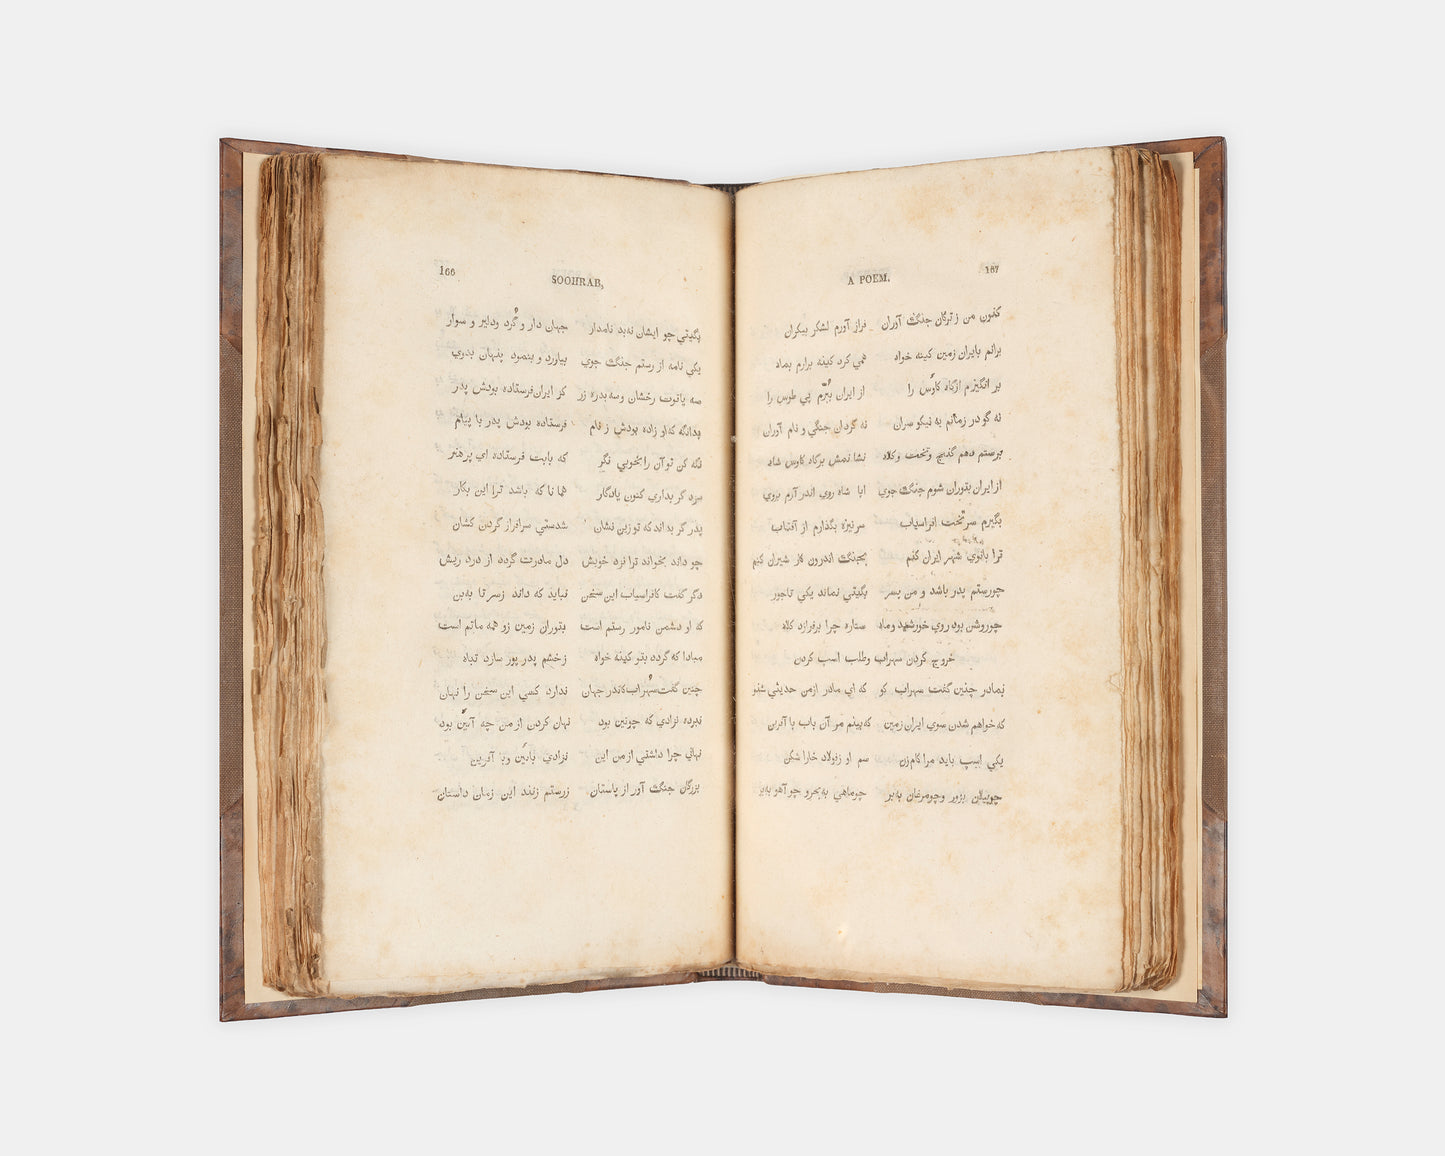 166
SOOHRAB,
بگيتي چو ايشان نه بد نامدار جهان دار و گرد و دلير و سوار
يكي نامه از رستم جنگ جوي بياورد و بنمود پنهان بدوي
سه ياقوت رخشان و سه بدره زر كز ايران فرستاده بودش پدر
بدانگه كه او زاده بودش ز نام فرستاده بودش پدر با پيام
نگه كن تو آن را بخوبي نگر كه بابت فرستاده اي پر هنر
سزد گر بداري كنون يادگار همانا كه باشد ترا اين بكار
پدر گر بداند كه تو زين نشان شدستي سرافراز گردن كشان
چو داند بخواند ترا نزد خويش دل مادرت گردد از درد ريش
دگر گفت كافراسياب اين سخن نبايد كه داند ز سر تا به بن
كه او دشمن نامور رستم است بتوران زمين زو همه ماتم است
مبادا كه گردد بتو كينه خواه ز خشم پدر پور سازد تباه
چنين گفت سهراب كاندر جهان ندارد كسي اين سخن را نهان
نبرده نژادي كه چونين بود نهان كردن از من چه آئين بود
نهاني چرا داشتي از من اين نژادي بائين و با آفرين
بزرگان جنگ آور از باستان ز رستم زنند اين زمان داستان
A POEM.
167
كنون من ز تركان جنگ آوران فراز آورم لشكر بيكران
برانم بايران زمين كينه خواه همي گرد كينه برارم بماه
بر انگيزم از گاه كاوس را از ايران ببرم پي طوس را
نه گودر زمانم به نيكو سران نه گردان جنگي و نام آوران
برستم دهم گنج و تخت و كلاه نشانمش بر گاه كاوس شاه
از ايران بتوران شوم جنگ جوي ابا شاه روي اندر آرم بروي
بگيرم سر تخت افراسياب سر نيزه بگذارم از آفتاب
ترا بانوي شهر ايران كنم بجنگ اندرون كار شيران كنم
چو رستم پدر باشد و من پسر بگيتي نماند يكي تاجور
چو روشن بود روي خورشيد و ماه ستاره چرا بر فرازد كلاه
خروج كردن سهراب و طلب اسب كردن
بمادر چنين گفت سهراب كو كه اي مادر از من حديثي شنو
كه خواهم شدن سوي ايران زمين كه بينم مر آن باب با آفرين
يكي اسپ بايد مرا گام زن سم او ز پولاد خارا شكن
چو پيلان بزور و چو مرغان به پر چو ماهي به بحر و چو آهو به بر